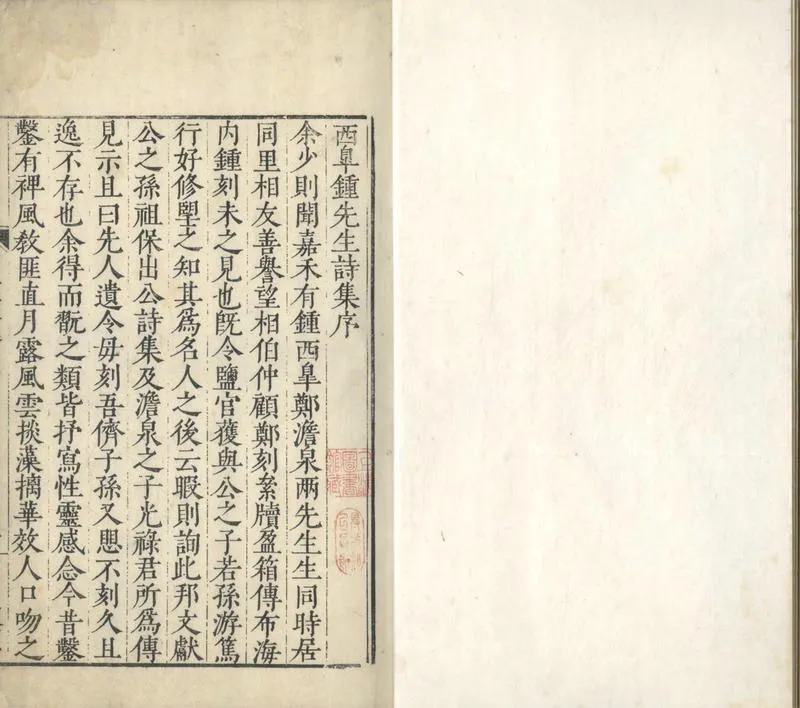 西皐鍾先生詩集序
余少則聞嘉禾有鍾西皐鄭澹泉兩先生生同時居
同里相友善譽望相伯仲顧鄭刻縏牘盈箱傳布海
内鍾刻未之見也旣令鹽官穫與公之子若孫游篤
行好修朢之知其爲名人之後云暇則詢此邦文獻
公之孫祖保出公詩集及澹泉之子光祿君所爲傳
見示且曰先人遺令毋刻吾儕子孫又思不刻久且
逸不存也余得而翫之類皆抒寫性靈感念今昔鑿
鑿有裨風敎匪直月露風雲掞藻摛華效人口吻之
圖書